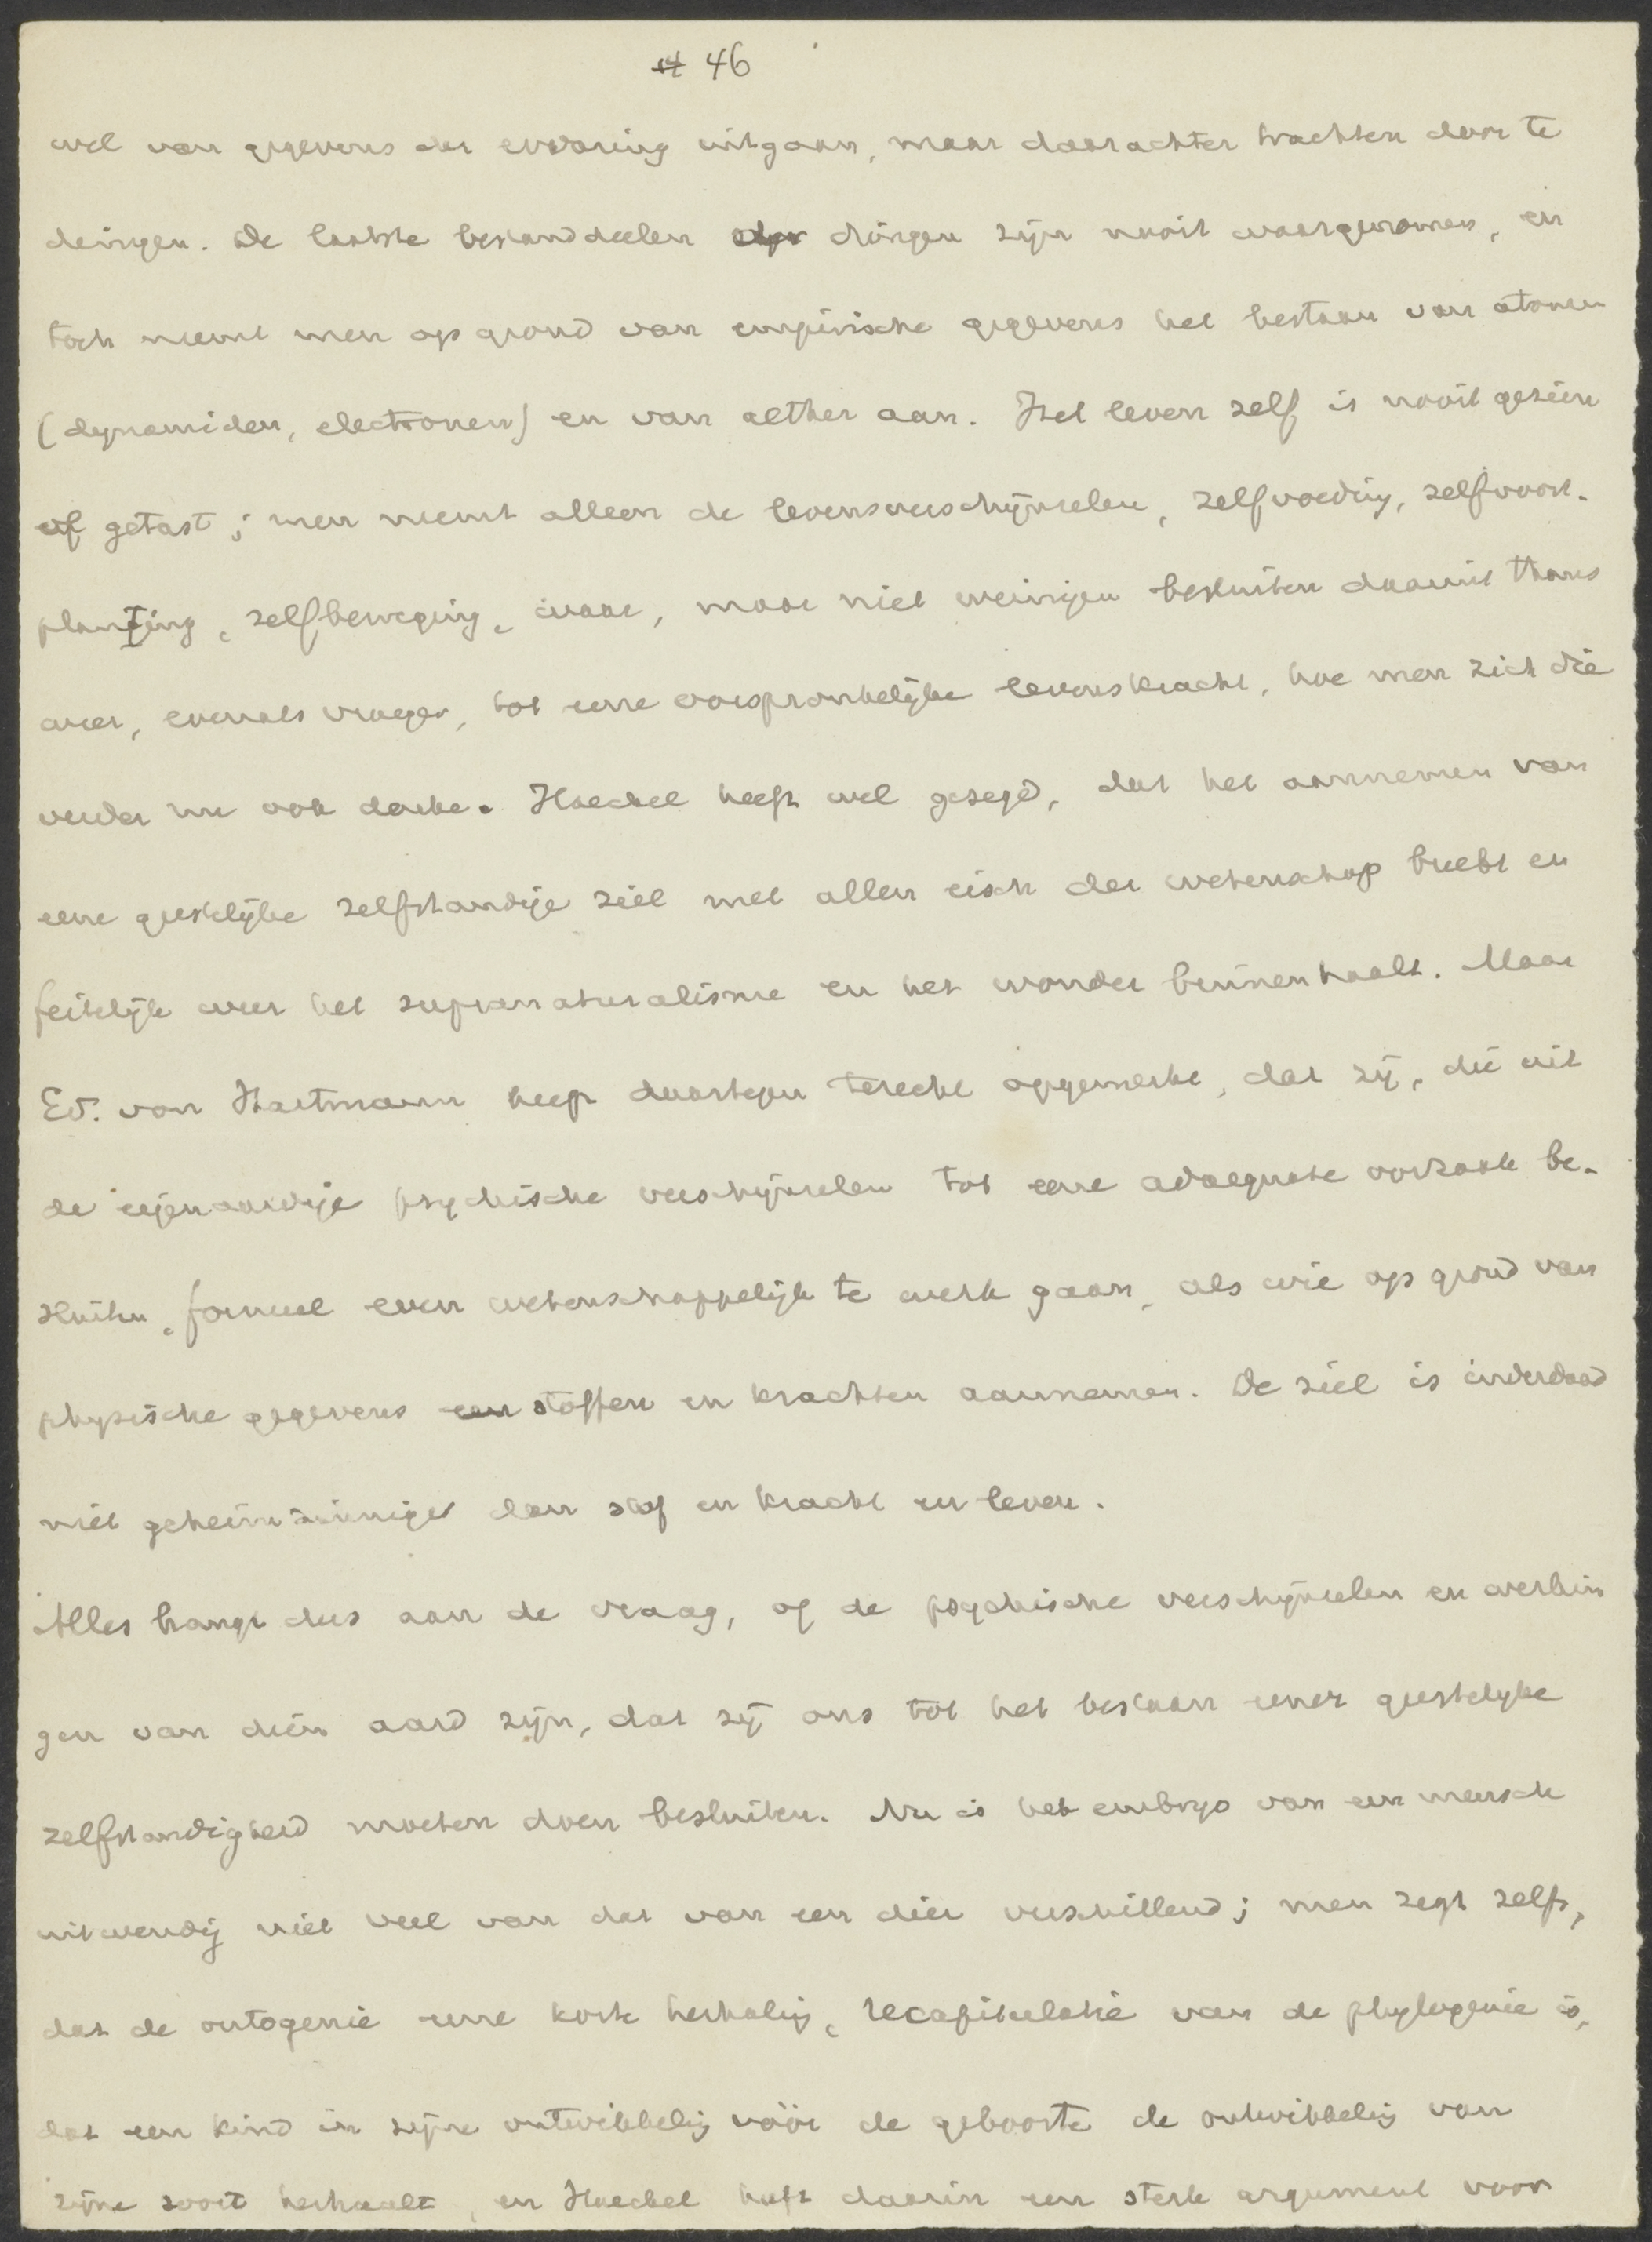 46
wel van gegevens der ervaring uitgaan, maar daarachter trachten door te
dringen. De laatste bestanddeelen der dingen zijn nooit waargenomen, en
toch neemt men op grond van empirische gegevens het bestaan van atomen
(dynamiden, electronen) en van aether aan. Het leven zelf is nooit gezien
of getast; men neemt alleen de levensverschijnselen, zelfvoeding, zelfvoort-
planting, zelfbeweging, waar, maar niet weinigen besluiten daaruit thans
weer, evenals vroeger, tot eene oorspronkelijke levenskracht, hoe men zich die
verder nu ook denke. Haeckel heeft wel gezegd, dat het aannemen van
eene geestelijke zelfstandige ziel met allen eisch der wetenschap breekt en
feitelijk weer het supranaturalisme en het wonder binnenhaalt. Maar
Ed. von Hartmann heeft daartegen terecht opgemerkt, dat zij, die uit
de eigenaardige psychische verschijnselen tot eene adaequate oorzaak be-
sluiten, formeel even wetenschappelijk te werk gaan, als wie op grond van
physische gegevens een stoffen en krachten aannemen. De ziel is inderdaad
niet geheimzinniger dan stof en kracht en leven.
Alles hangt dus aan de vraag, of de psychische verschijnselen en werkin
gen van dien aard zijn, dat zij ons tot het bestaan eener geestelijke
zelfstandigheid moeten doen besluiten. Nu is het embryo van een mensch
uitwendig niet veel van dat van een dier verschillend; men zegt zelfs,
dat de ontogenie eene korte herhaling, recapitulatie van de phylogenie is,
dat een kind in zijne ontwikkeling vóór de geboorte de ontwikkeling van
zijne soort herhaalt, en Haeckel heeft daarin een sterk argument voor